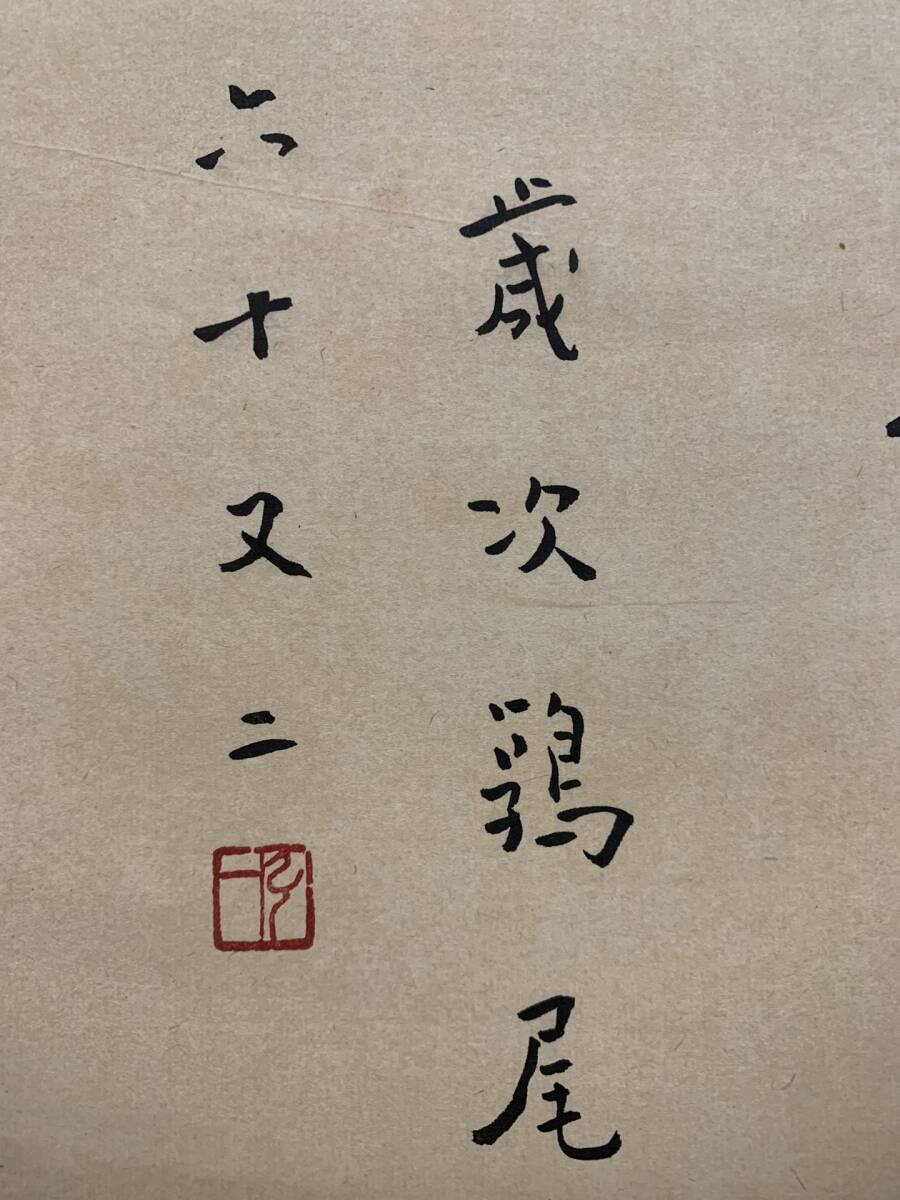 歲次鶉尾
六十又二